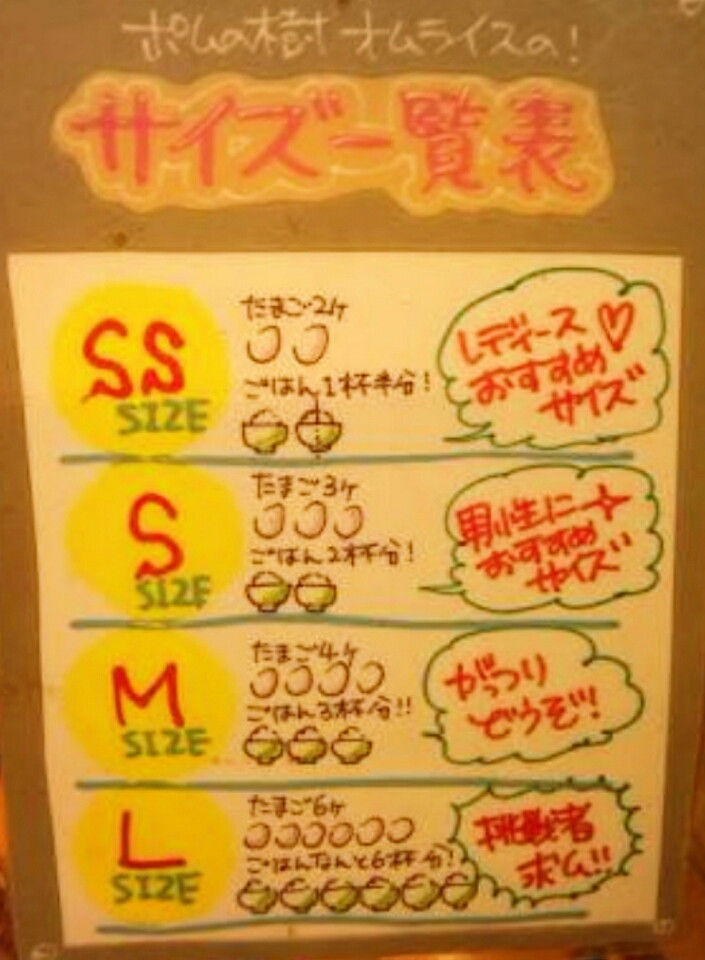 ポムの樹 オムライスの!
サイズ一覧表
SS
SIZE
たまご2ヶ
ごはん1杯半分!
レディース♡
おすすめ
サイズ
S
SIZE
たまご3ヶ
ごはん2杯分!
男性に
おすすめ
サイズ
M
SIZE
たまご4ヶ
ごはん3杯分!!
がっつり
どうぞ!
L
SIZE
たまご6ヶ
ごはんなんと6杯分!
挑戦者
求ム!!